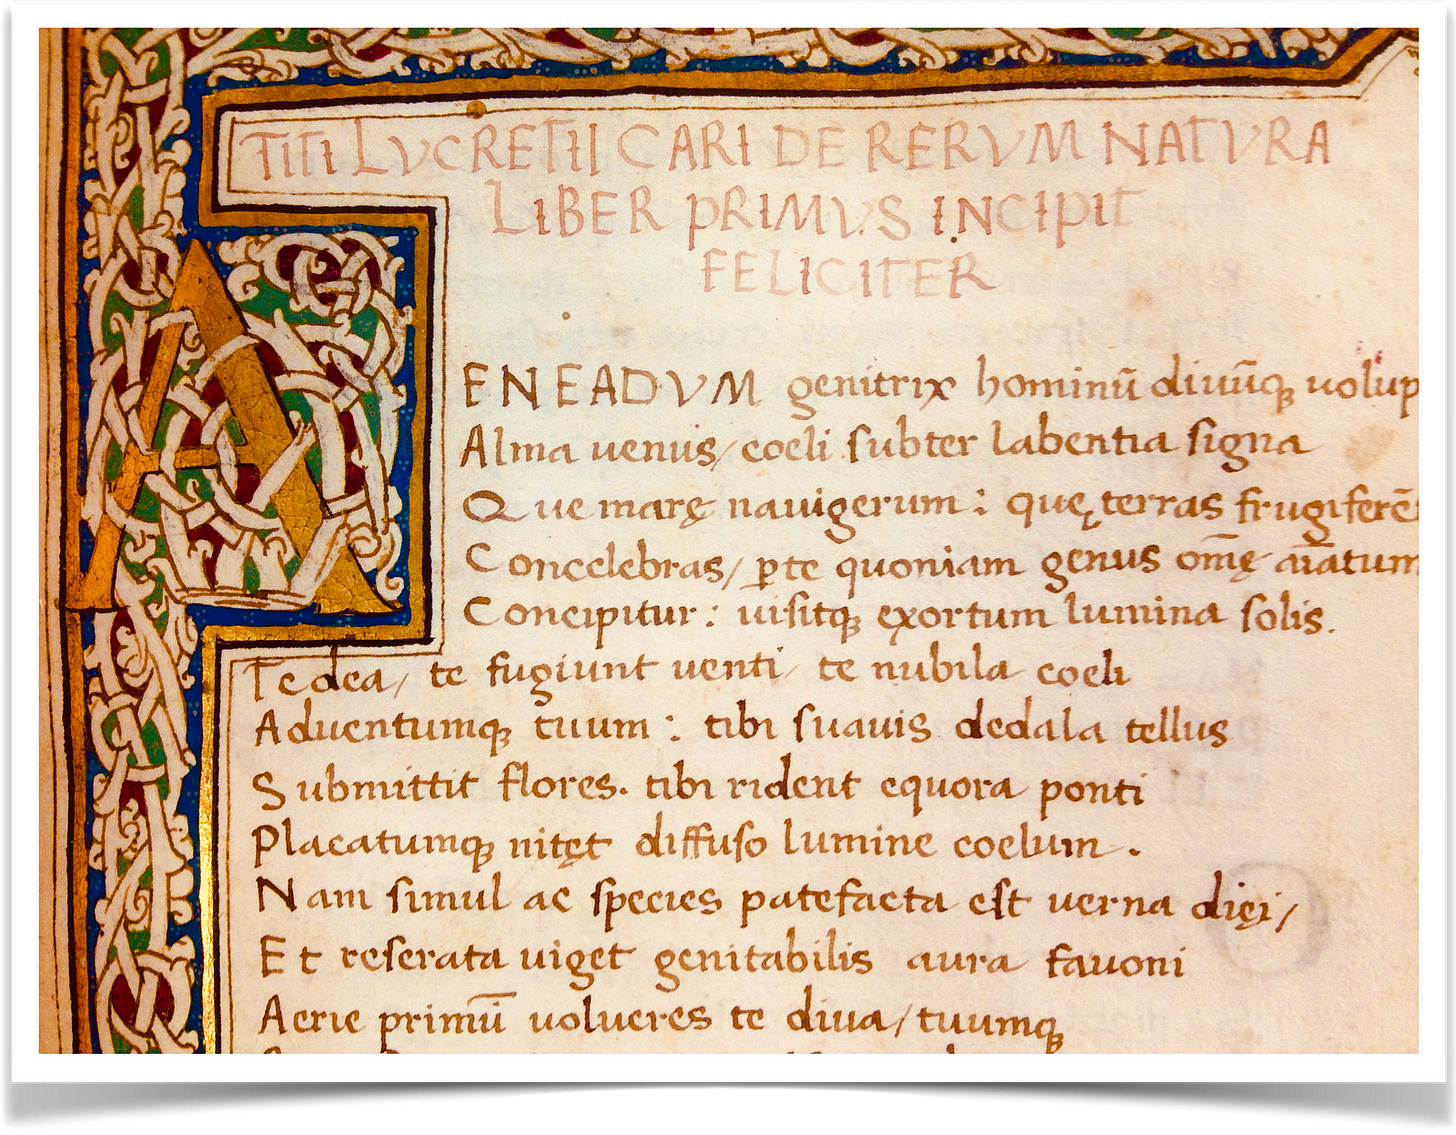 TITI LVCRETII CARI DE RERVM NATVRA
LIBER PRIMVS INCIPIT
FELICITER
AENEADVM genitrix hominū diuūq; uolup
Alma uenus/ coeli subter labentia signa
Que marę nauigerum : quę terras frugiferē
Concelebras/ ꝑte quoniam genus om̄ę aīatum
Concipitur : uisitq; exortum lumina solis.
Te dea/ te fugiunt uenti/ te nubila coeli
Aduentumq; tuum : tibi suauis dedala tellus
Submittit flores. tibi rident equora ponti
Placatumq; nitęt diffuso lumine coelum.
Nam simul ac species patefacta est uerna dięi/
Et reserata uiget genitabilis aura fauoni
Aerie primū uolucres te diua/ tuumq;